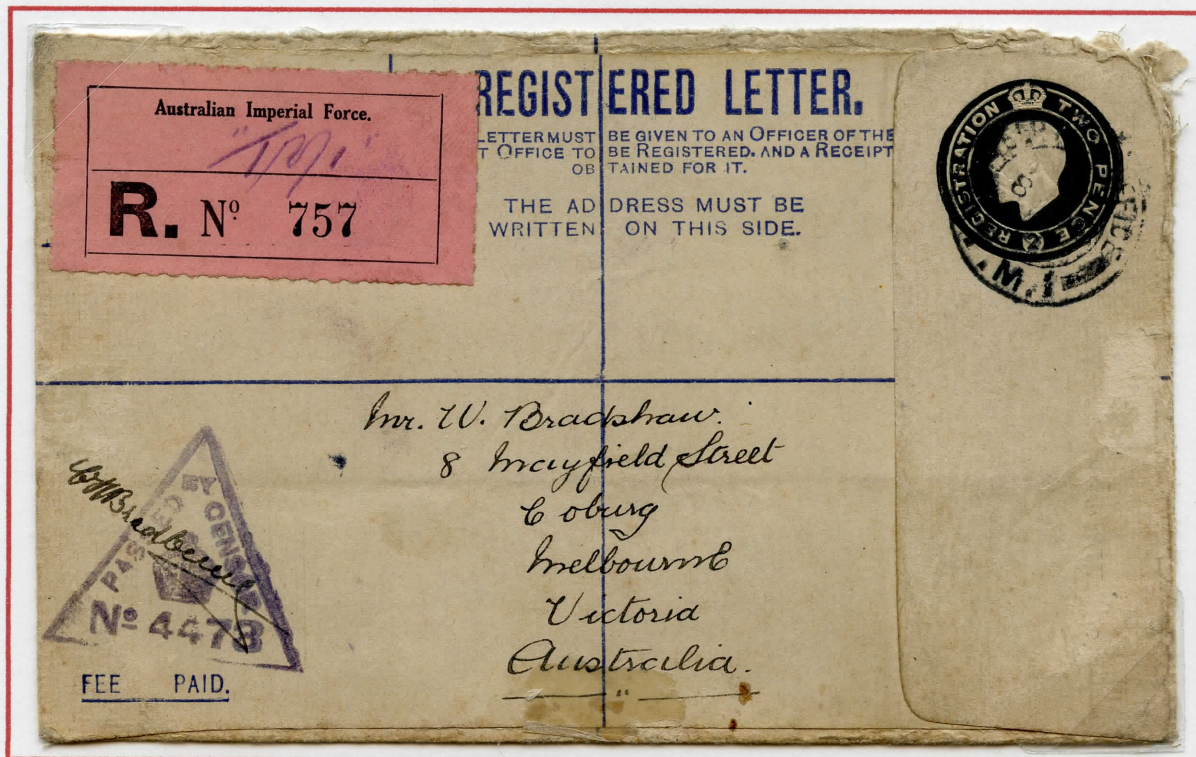 Australian Imperial Force.
R. Nº 757
REGISTERED LETTER.
LETTER MUST BE GIVEN TO AN OFFICER OF THE
T OFFICE TO BE REGISTERED. AND A RECEIPT
OBTAINED FOR IT.
THE ADDRESS MUST BE
WRITTEN ON THIS SIDE.
REGISTRATION TWO PENCE 2
Mr. W. Bradshaw.
8 Mayfield Street
Coburg
Melbourne
Victoria
Australia.
PASSED BY CENSOR
Nº 4473
FEE PAID.